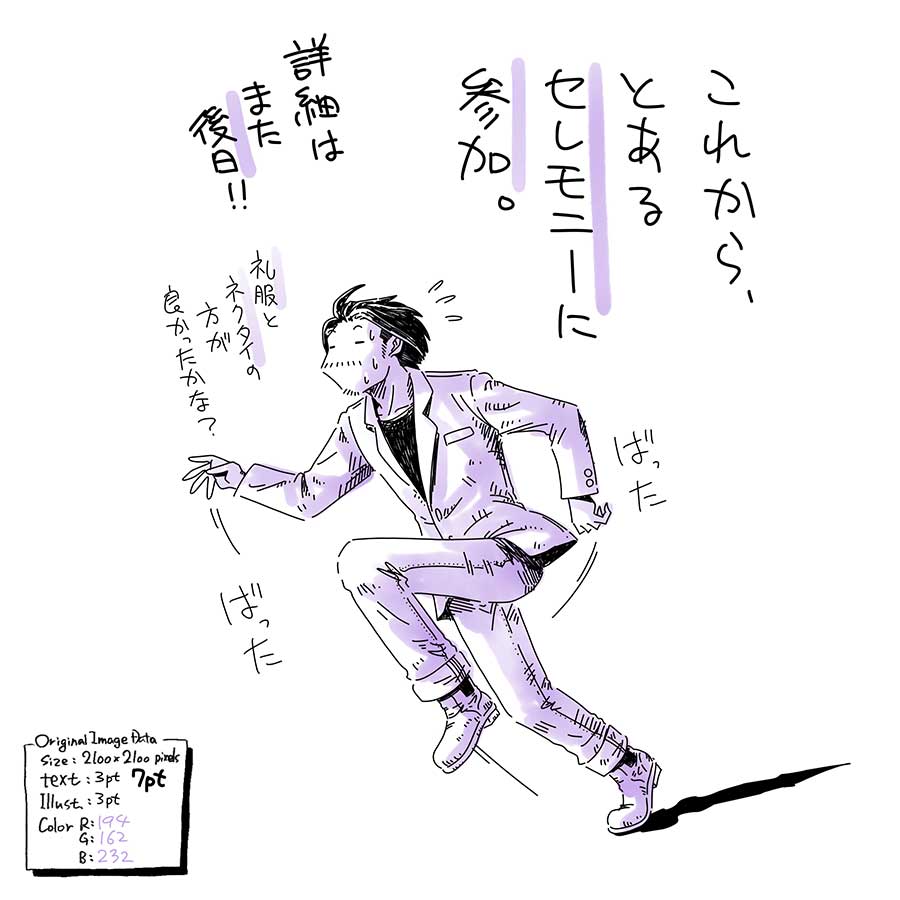 これから、
とある
セレモニーに
参加。
詳細は
また
後日!!
礼服と
ネクタイの
方が
良かったかな?
ばった
ばった
Original Image Data
Size : 2100×2100 pixels
text : 3pt 7pt
Illust. : 3pt
Color R: 194
G: 162
B: 232